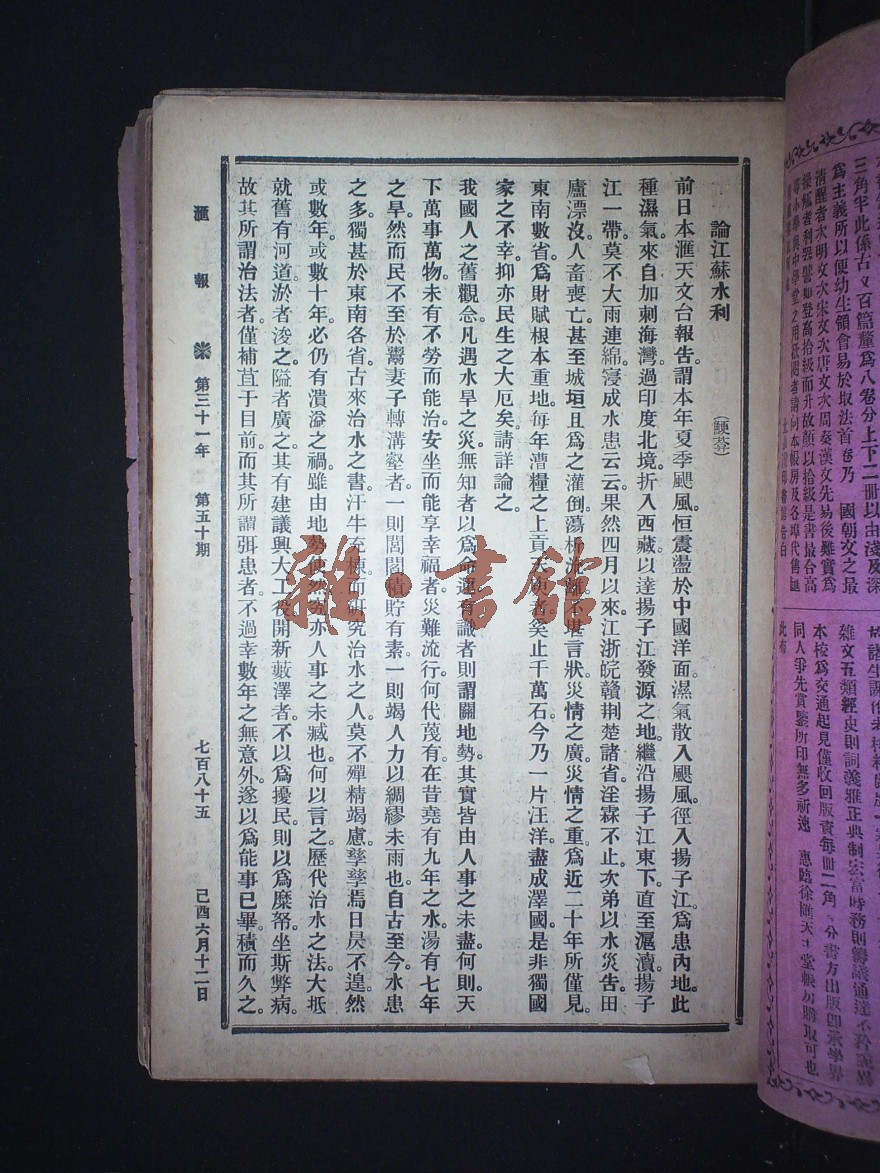 論江蘇水利
前日本滙天文台報告謂本年夏季颶風恒震盪於中國洋面濕氣散入颶風徑入揚子江爲患內地此
種濕氣來自加刺海灣過印度北境折入西藏以達揚子江發源之地繼沿揚子江東下直至滬瀆揚子
江一帶莫不大雨連綿寖成水患云云果然四月以來江浙皖贛荆楚諸省淫霖不止次弟以水災告田
廬漂沒人畜喪亡甚至城垣且爲之灌倒蕩析流離不堪言狀災情之廣災情之重爲近二十年所僅見
東南數省爲財賦根本重地每年漕糧之上貢天庾者奚止千萬石今乃一片汪洋盡成澤國是非獨國
家之不幸抑亦民生之大厄矣請詳論之
我國人之舊觀念凡遇水旱之災無知者以爲命運有識者則謂關地勢其實皆由人事之未盡何則天
下萬事萬物未有不勞而能治安坐而能享幸福者災難流行何代蔑有在昔堯有九年之水湯有七年
之旱然而民不至於鬻妻子轉溝壑者一則閭閻積貯有素一則竭人力以綢繆未雨也自古至今水患
之多獨甚於東南各省古來治水之書汗牛充棟而研究治水之人莫不殫精竭慮孳孳焉日昃不遑然
或數年或數十年必仍有潰溢之禍雖由地勢使然究亦人事之未臧也何以言之歷代治水之法大抵
就舊有河道淤者浚之隘者廣之其有建議興大工役開新藪澤者不以爲擾民則以爲糜帑坐斯弊病
故其所謂治法者僅補苴于目前而其所謂弭患者不過幸數年之無意外遂以爲能事已畢積而久之
滙報 第三十一年 第五十期 七百八十五 己酉六月十二日
雜·書館
三角半此係古文百篇釐爲八卷分上下二冊以由淺及深
爲主義所以便幼生領會易於取法首卷乃 國朝文之最
清醒者次明文次宋文次唐文次周秦漢文先易後難實爲
操觚者利器譬如登高拾級而升故顏以拾級是書最合高
雜文五類經史則詞義雅正典制宏富時務則籌議通達不矜詭異
本校爲交通起見僅收回版資每冊二角 分書方出版卽承學界
同人爭先賞鑒所印無多祈速 惠臨徐滙天主堂帳房購取可也
此布